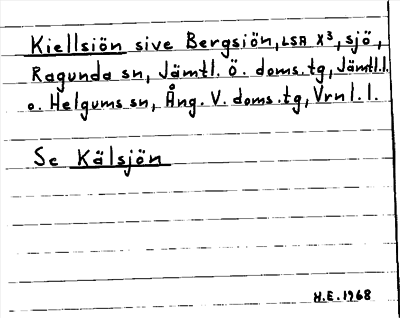 Kiellsiön sive Bergsiön, LSA X³, sjö,
Ragunda sn, Jämtl. Ö. doms.tg, Jämtl.l.
o. Helgums sn, Ång. V. doms.tg, Vrnl.l.
Se Kälsjön
H.E. 1968